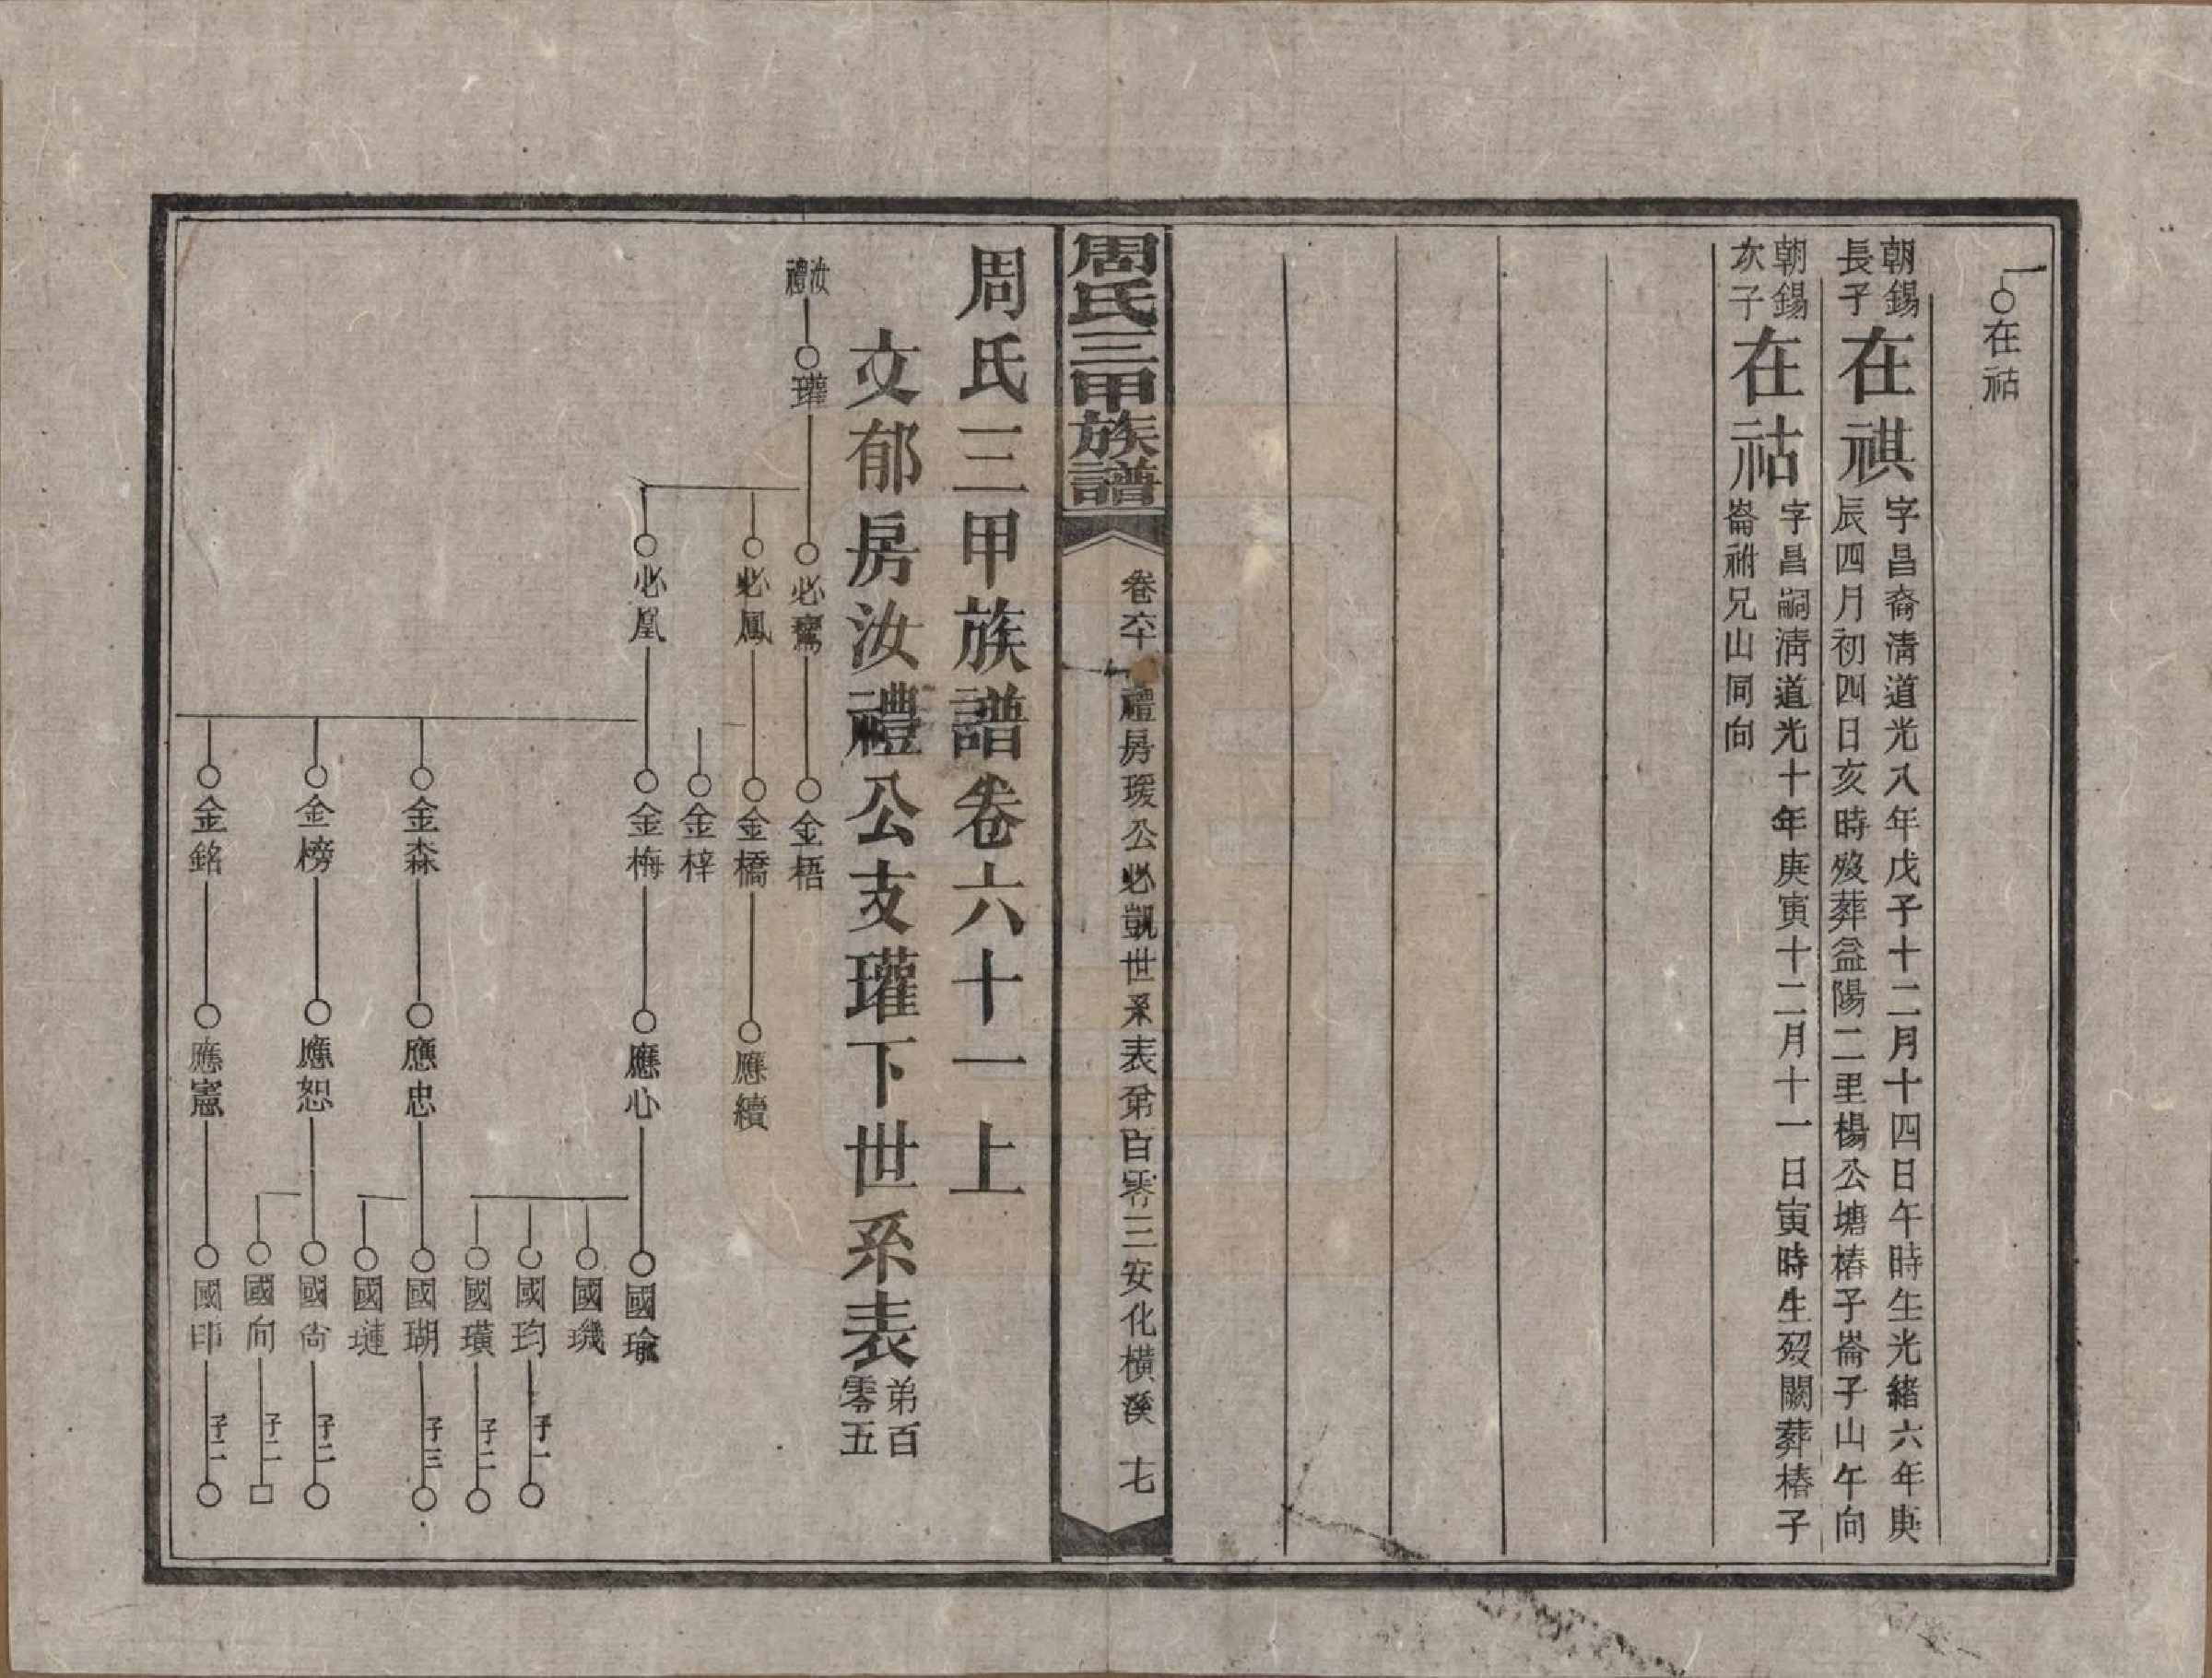 在祜
朝錫
長子
在祺
字昌裔淸道光八年戊子十二月十四日午時生光緖六年庚
辰四月初四日亥時歿葬益陽二里楊公塘椿子崙子山午向
朝錫
次子
在祜
字昌嗣淸道光十年庚寅十二月十一日寅時生歿闕葬椿子
崙祔兄山同向
周氏三甲族譜
卷六十 禮房瑗公必凱世系表第百零三安化橫溪 十七
周氏三甲族譜卷六十一上
文郁房汝禮公支瓘下世系表
第百
零五
汝禮
瓘
必鸞
金梧
必鳳
金橋
應續
金梓
必凰
金梅
應心
國瑜
國璣
國玓
子一
國璜
子二
金森
應忠
國瑚
子三
國璉
金榜
應恕
國尙
子二
國向
子二
金銘
應憲
國印
子二